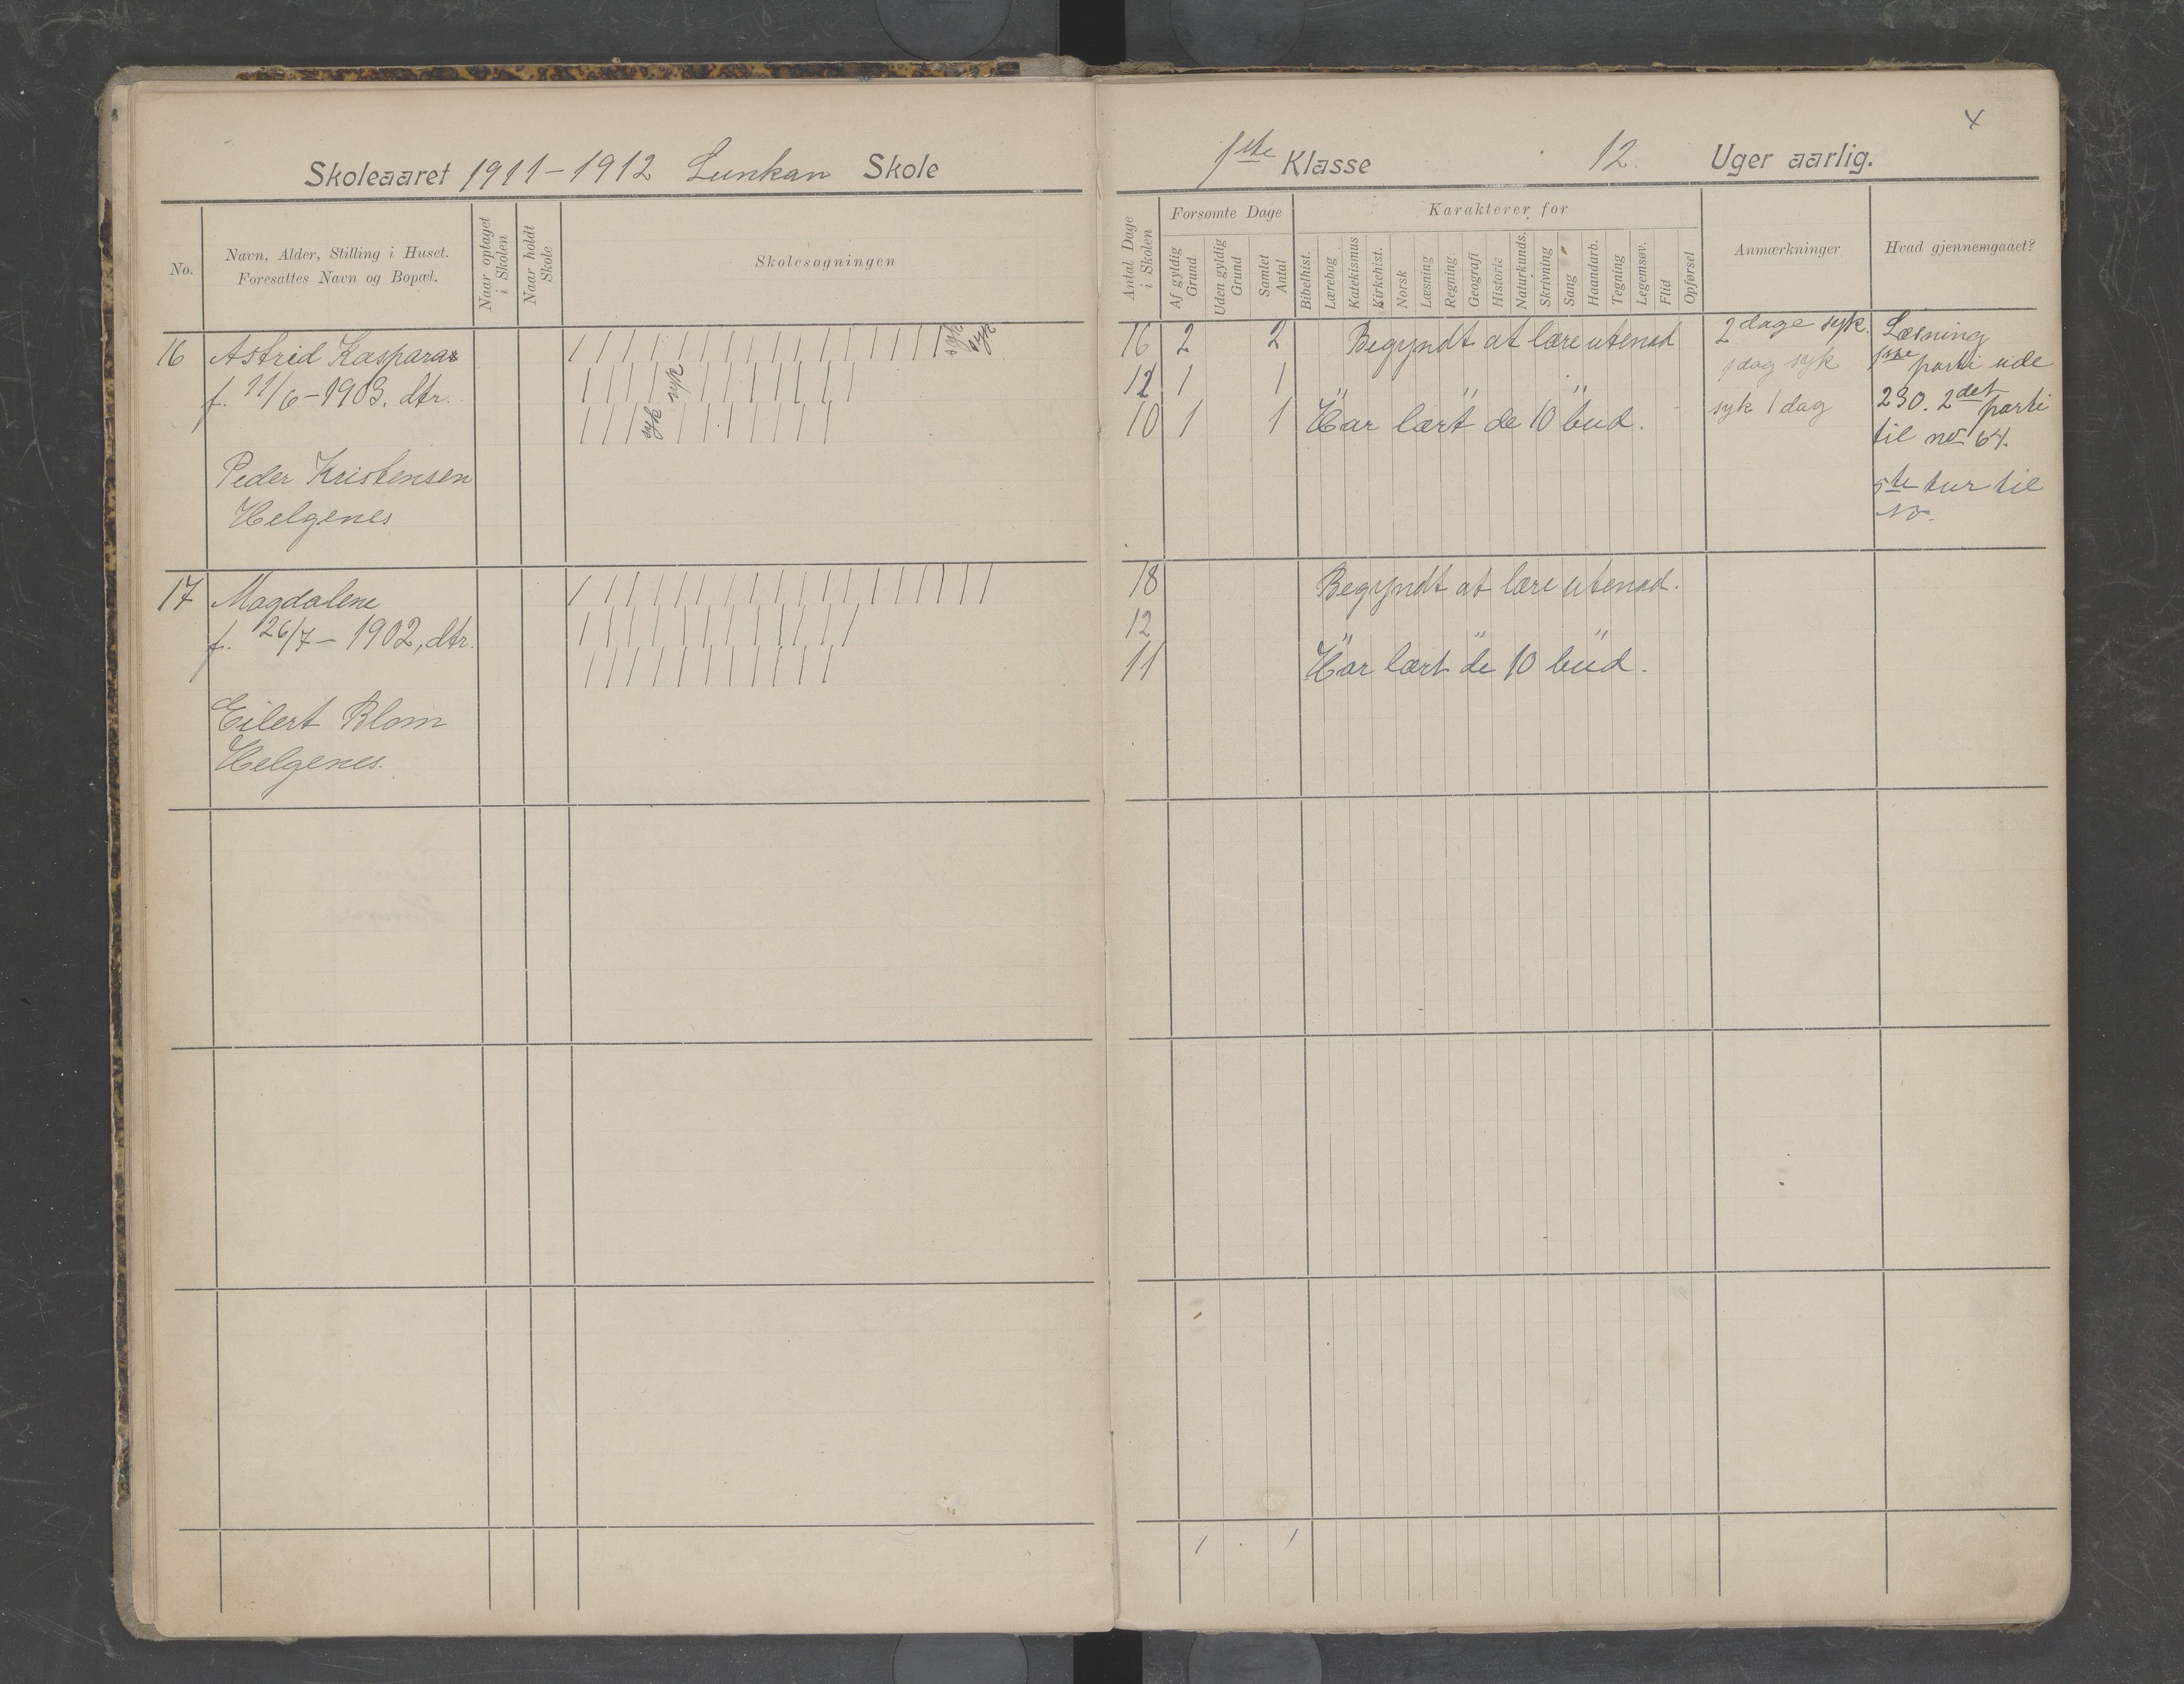 Skoleaaret 1911-1912 Lunkan Skole
No.
Navn, Alder, Stilling i Huset.
Foresattes Navn og Bopæl.
Naar optaget
i Skolen
Naar holdt
Skole
Skolesøgningen
16 Astrid Kaspara
f. 11/6-1903. dtr.
Peder Kristensen
Helgenes
syk
syk
syk
syk
17 Magdalene
f. 26/7-1902, dtr.
Eilert Blom
Helgenes.
1ste Klasse 12. Uger aarlig.
Antal Dage
i Skolen
Forsømte Dage
Af gyldig
Grund
Uden gyldig
Grund
Samlet
Antal
Karakterer for
Bibelhist.
Lærebog
Katekismus
Kirkehist.
Norsk
Læsning
Regning
Geografi
Historie
Naturkunds.
Skrivning
Sang
Haandarb.
Tegning
Legemsøv.
Flid
Opførsel
Anmærkninger
Hvad gjennemgaaet?
16 2 2 Begyndt at lære utenad 2 dage syk.
12 1 1 " " " 1 dag syk
10 1 1 Har lært de 10 bud. syk 1 dag
Læsning
1ste parti side
230. 2det parti
til no 64.
5te tur til
18 Begyndt at lære utenad.
12 " " "
11 Har lært de 10 bud.